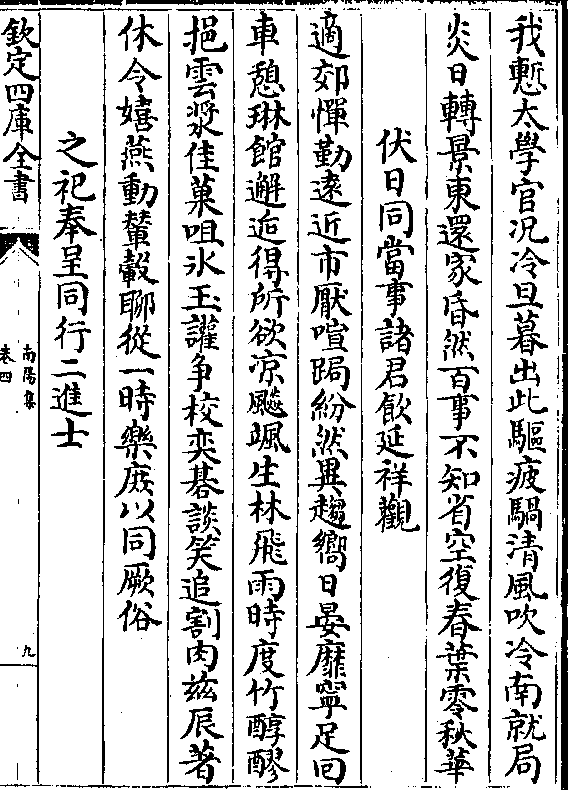 我慙太學官况冷旦暮出此驅疲騧清風吹冷南就局
炎日轉景東還家昏然百事不知省空復春葉零秋華
伏日同當事諸君飲延祥觀
適郊憚勤遠近市厭喧跼紛然異趨嚮日晏靡寧足回
車憩琳館邂逅得所欲凉飈颯生林飛雨時度竹醇醪
挹雲漿佳菓咀氷玉讙争校奕碁談笑追割肉兹辰著
休令嬉燕動輦轂聊從一時樂庶以同厥俗
之祀奉呈同行二進士
欽定四庫全書
南陽集
卷四
九